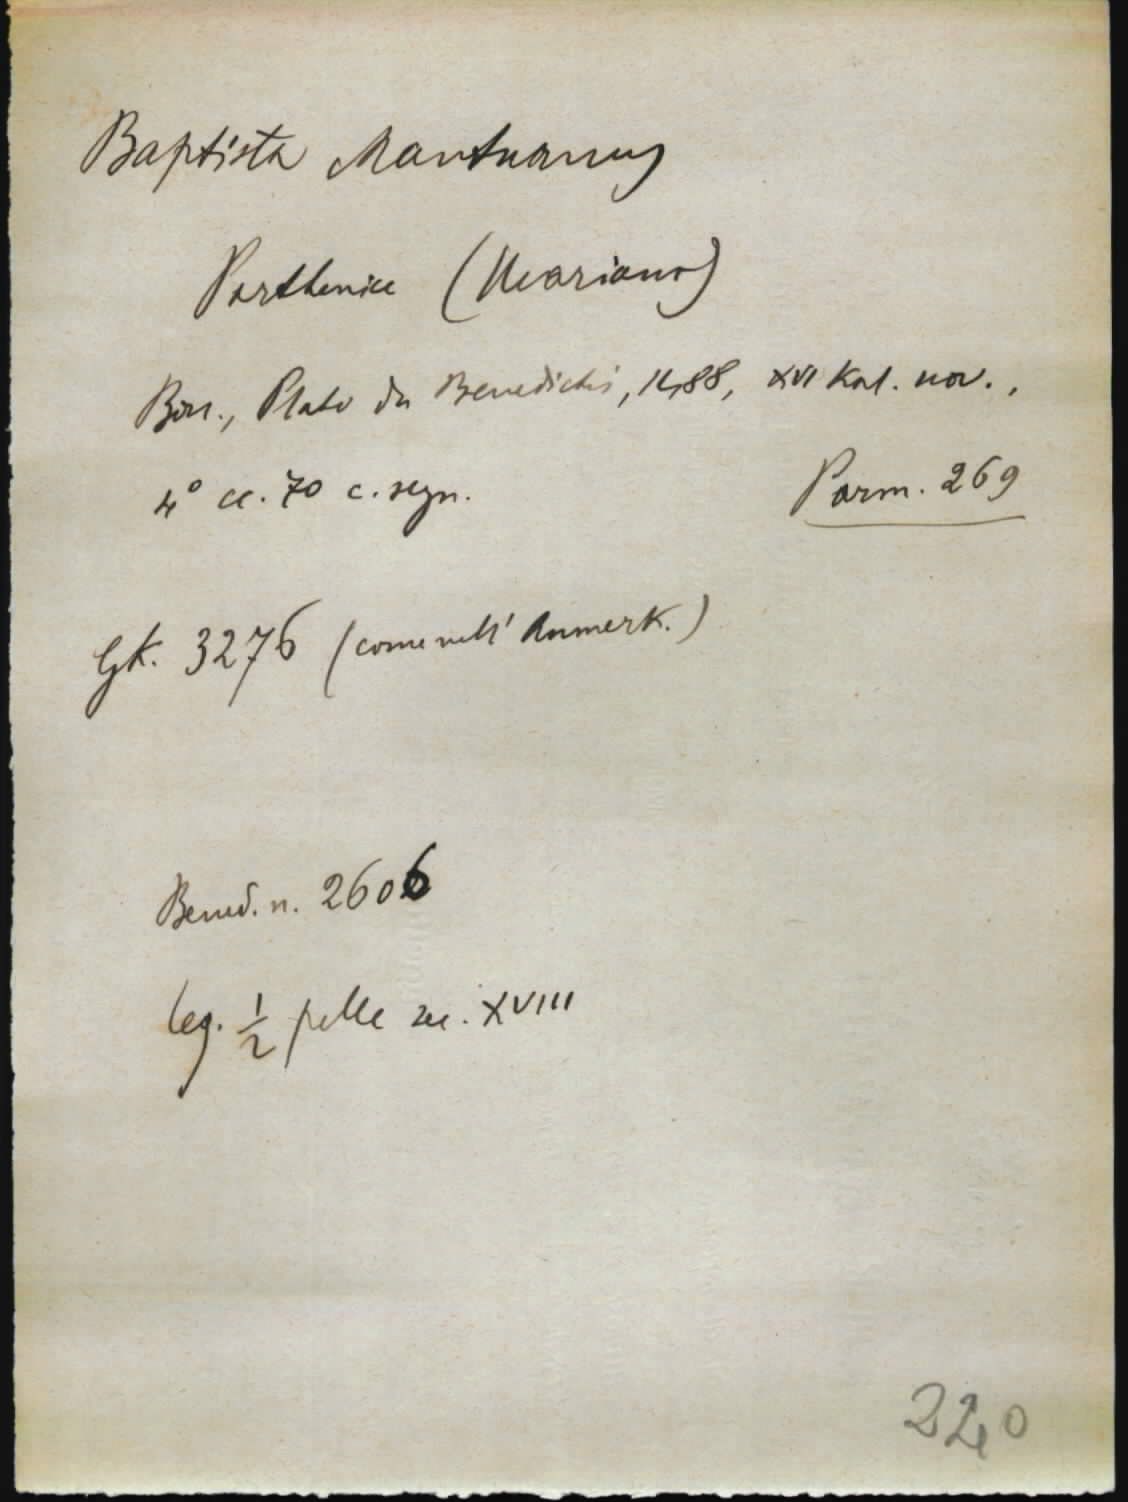 Baptista Mantuanus
Parthenice (Mariana)
Bon., Plato de Benedictis, 1488, XVI Kal. nov.,
4° cc. 70 c. segn.
Parm. 269
GK. 3276 (come nell' Anmerk.)
Bened. n. 2606
leg. 1/2 pelle sec. XVIII